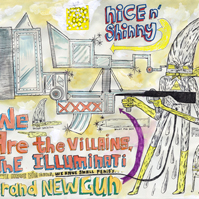 NiCE n'
SHiNNY
We
Are the ViLLAiNS,
THE ILLUMiNATi
WE HAVE SMALL PENiS.
Brand NEW GUN